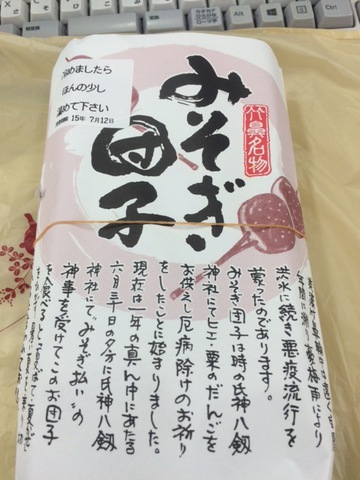 冷めましたら
ほんの少し
温めて下さい
15年 7月12日
みそぎ
団子
竹鼻名物
は遠く宝暦
梅雨により
洪水に続き悪疫流行を
蒙ったのであります。
みそぎ団子は時の氏神八剱
神社にてヒエ・粟のだんごを
お供えし厄病除けのお祈り
をしたことに始まりました。
現在は一年の真ん中にあたる
六月三十日の夕方に氏神八剱
神社にて、みそぎ払いの
神事を受けてこのお団子
を食べると
カタカナ
ひらがな
ローマ字